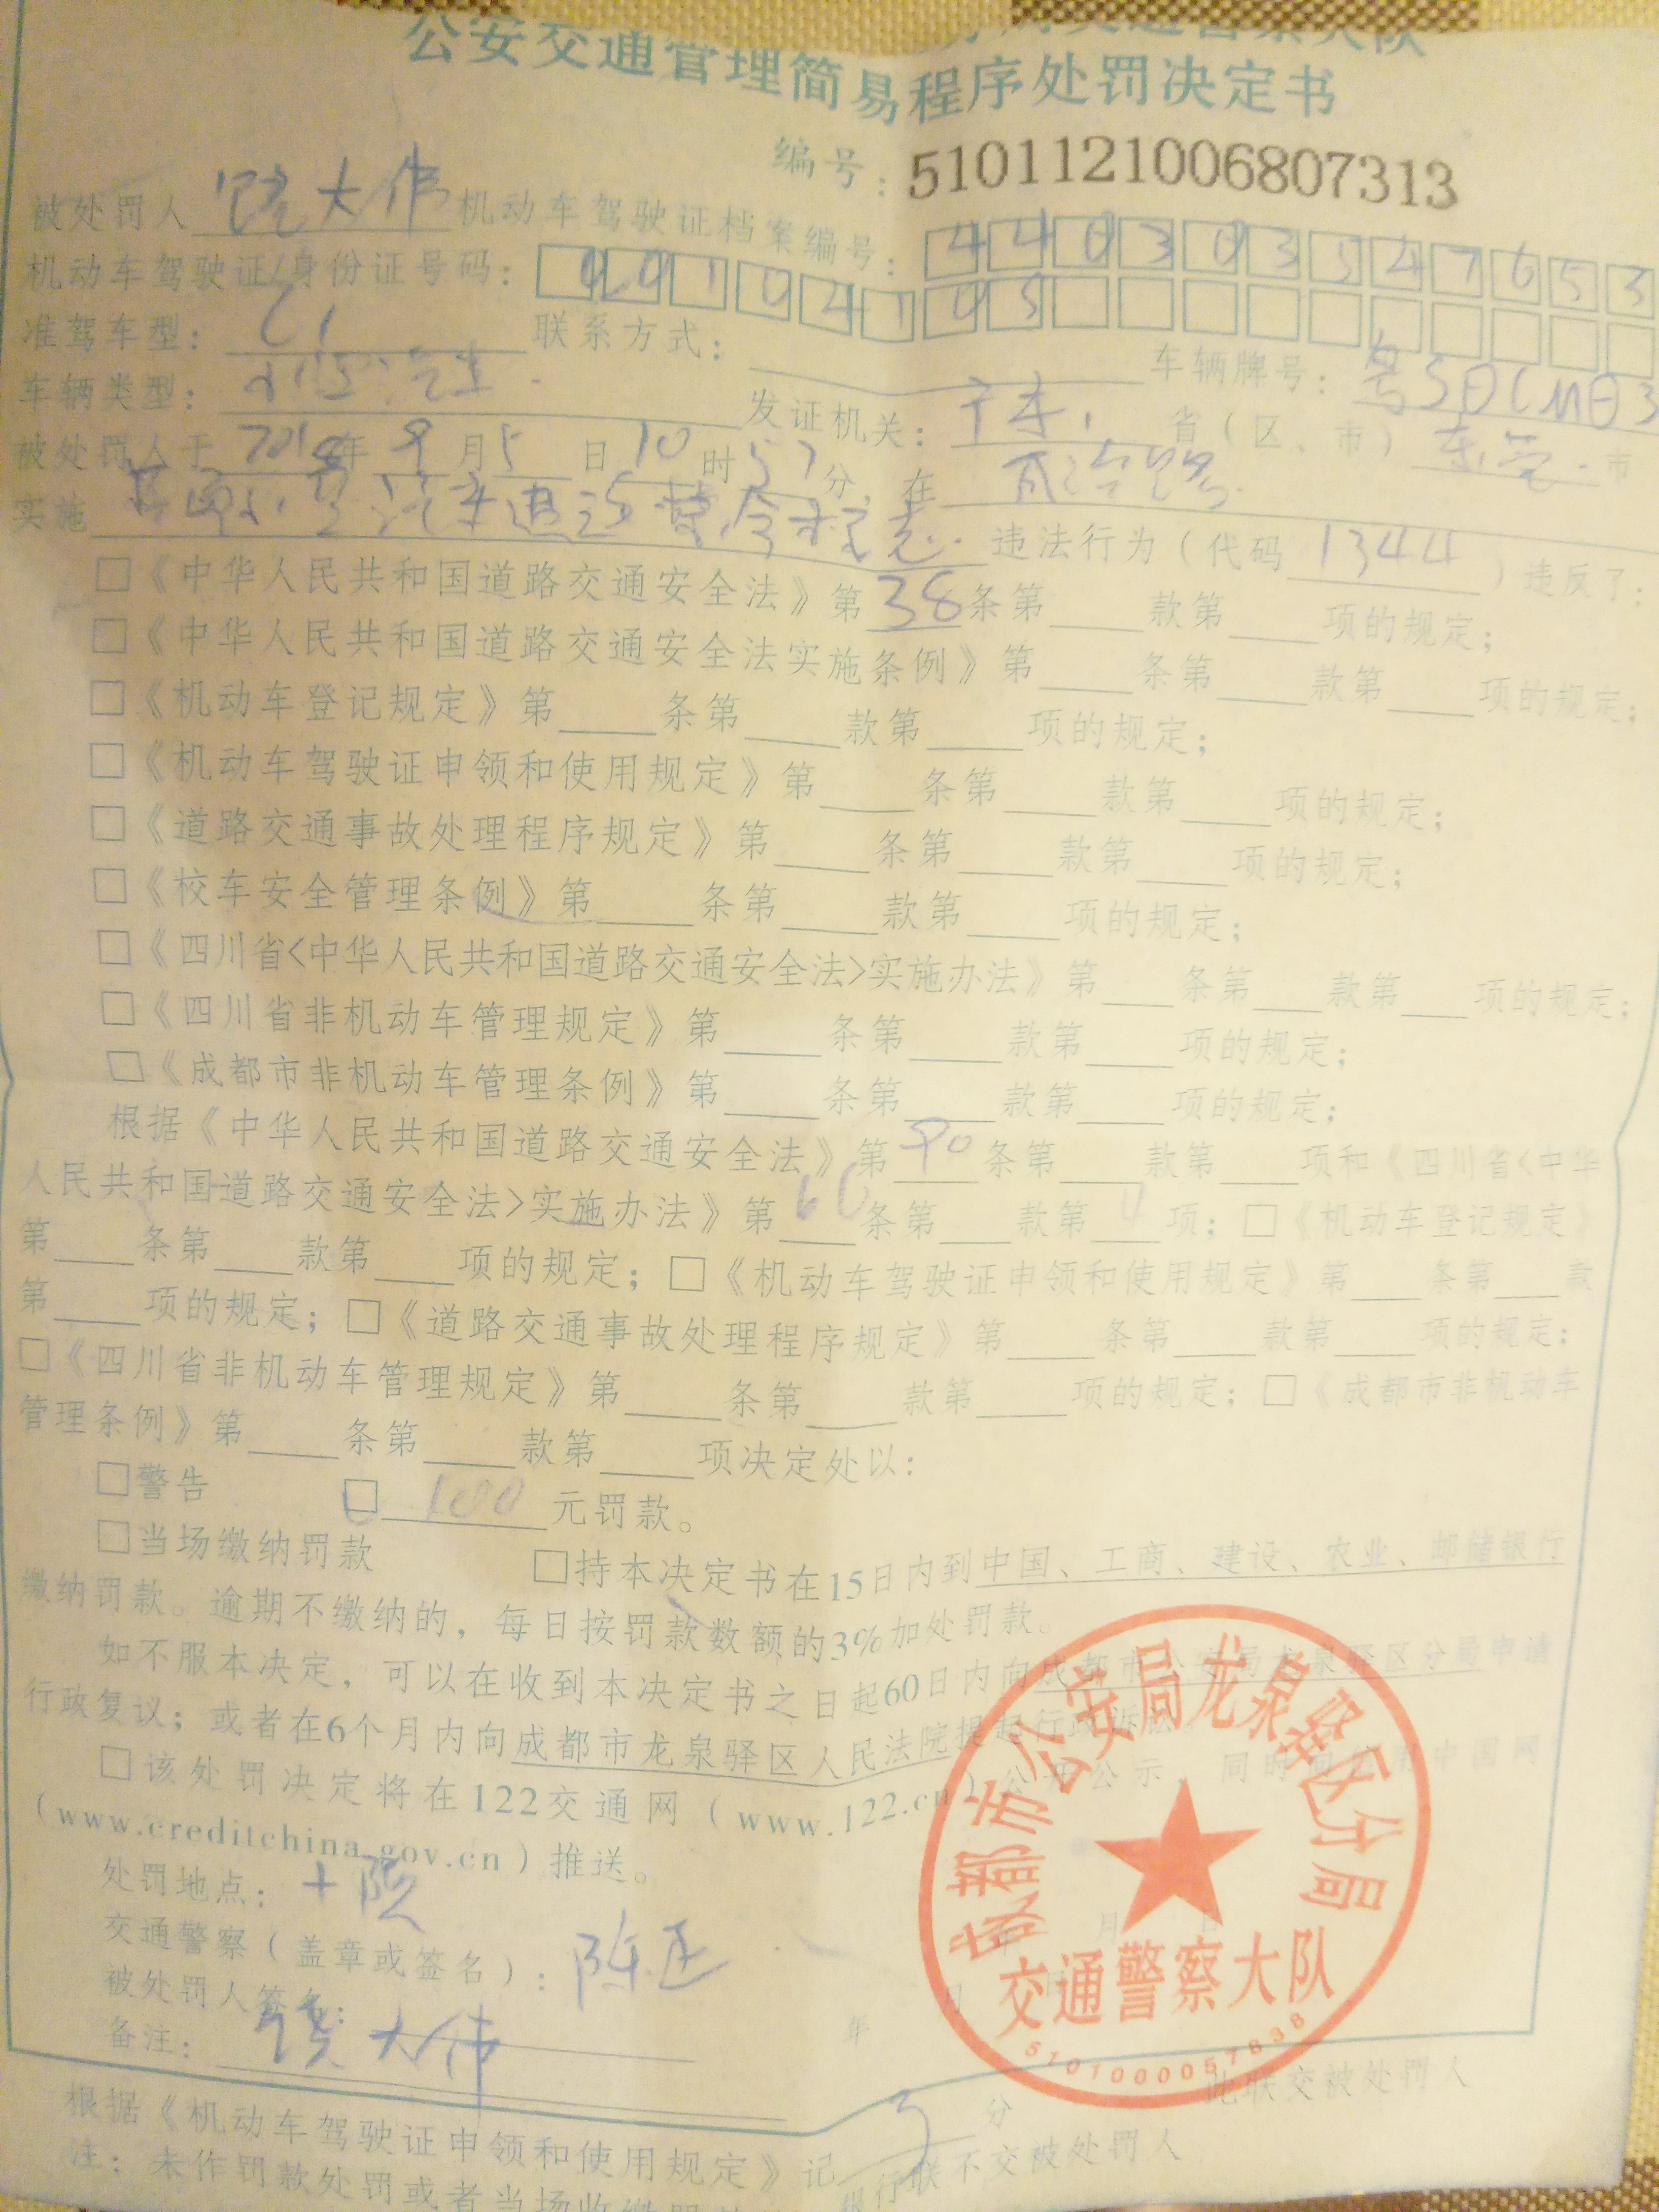 交通警察大队
公安交通管理简易程序处罚决定书
编号：5101121006807313
被处罚人 饶大伟 机动车驾驶证档案编号：440303547653
机动车驾驶证/身份证号码：
准驾车型：C1 联系方式： 车辆牌号：粤S
车辆类型：小型汽车 发证机关：广东 省（区、市）东莞 市
被处罚人于 2018年 9 月 5 日 10 时 57 分，在
实施 违反禁令标志 违法行为（代码 1344 ）违反了：
□《中华人民共和国道路交通安全法》第38条第____款第____项的规定；
□《中华人民共和国道路交通安全法实施条例》第____条第____款第____项的规定；
□《机动车登记规定》第____条第____款第____项的规定；
□《机动车驾驶证申领和使用规定》第____条第____款第____项的规定；
□《道路交通事故处理程序规定》第____条第____款第____项的规定；
□《校车安全管理条例》第____条第____款第____项的规定；
□《四川省<中华人民共和国道路交通安全法>实施办法》第____条第____款第____项的规定；
□《四川省非机动车管理规定》第____条第____款第____项的规定；
□《成都市非机动车管理条例》第____条第____款第____项的规定；
根据《中华人民共和国道路交通安全法》第90条第____款第____项和《四川省<中华
人民共和国道路交通安全法>实施办法》第60条第____款第 项；□《机动车登记规定》
第____条第____款第____项的规定；□《机动车驾驶证申领和使用规定》第____条第____款
第____项的规定；□《道路交通事故处理程序规定》第____条第____款第____项的规定；
□《四川省非机动车管理规定》第____条第____款第____项的规定；□《成都市非机动车
管理条例》第____条第____款第____项决定处以：
□警告 □ 100 元罚款。
□当场缴纳罚款 □持本决定书在15日内到中国、工商、建设、农业、邮储银行
缴纳罚款。逾期不缴纳的，每日按罚款数额的3%加处罚款。
如不服本决定，可以在收到本决定书之日起60日内向成都市公安局龙泉驿区分局申请
行政复议；或者在6个月内向成都市龙泉驿区人民法院提起行政诉讼。
□该处罚决定将在122交通网（www.122.cn）公开公示，同时向信用中国网
（www.creditchina.gov.cn）推送。
处罚地点：十陵
交通警察（盖章或签名）：陈 年 月 日
被处罚人签名：饶大伟 年 月 日
备注：
成都市公安局龙泉驿区分局
交通警察大队
5101000057838
此联交被处罚人
根据《机动车驾驶证申领和使用规定》记 3 分
注：未作罚款处罚或者当场收缴罚款 银行联不交被处罚人